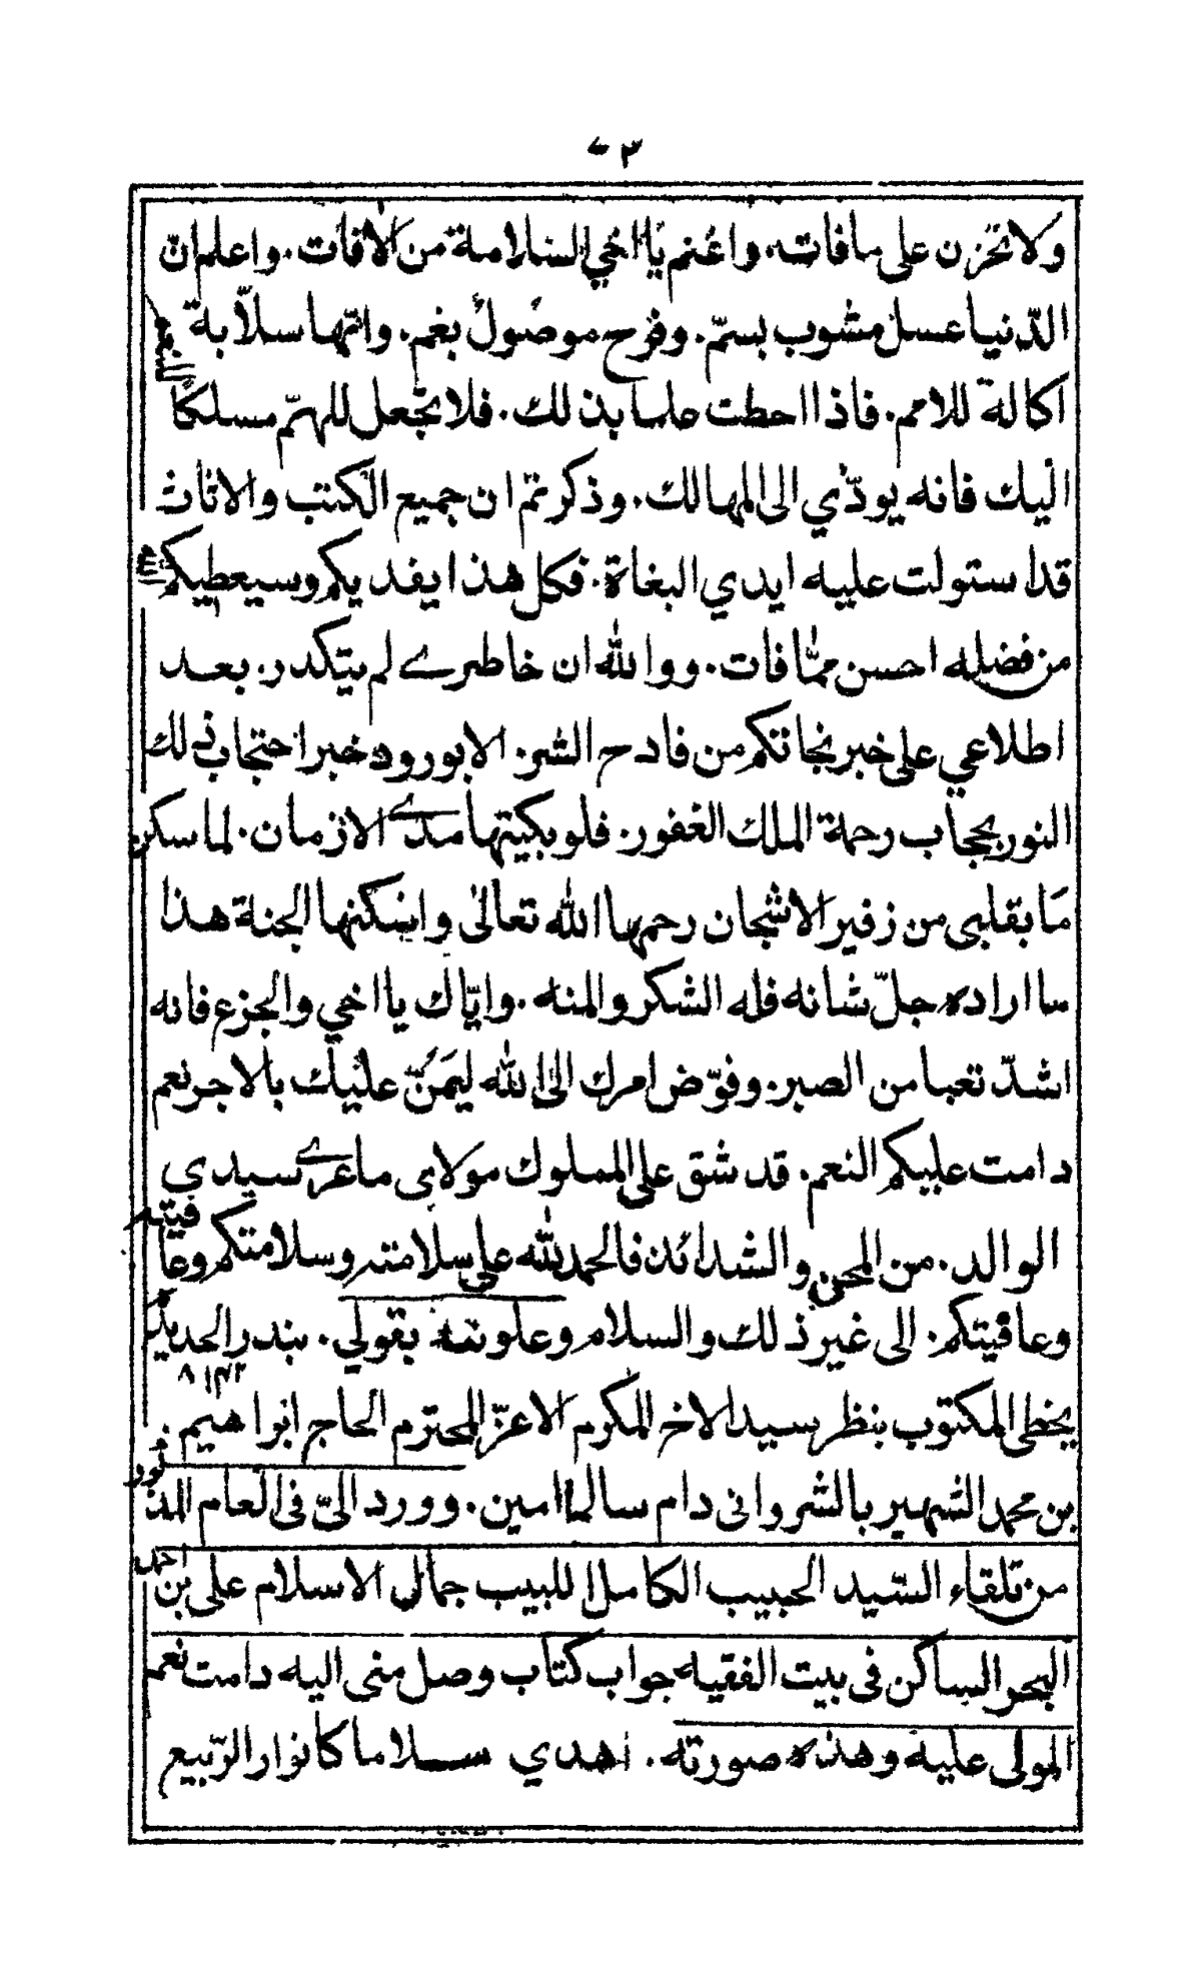 ولا تحزن على ما فات. واغنم يا اخي السلامة من الآفات. واعلم ان
الدّنيا عسل مشوب بسمّ. وفرح موصول بغم. وانها سلّابة
اكالة للامم. فاذا احطت علما بذلك. فلا تجعل للهمّ مسلكا
اليك فانه يودّي الى المهالك. وذكرتم ان جميع الكتب والاثاث
قد استولت عليه ايدي البغاة. فكل هذا يفديكم وسيعطيكم
من فضله احسن ممّا فات. ووالله ان خاطرے لم يتكدر. بعد
اطلاعي على خبر نجاتكم من فادح الشرر. الا بورود خبر احتجاب ذلك
النور بحجاب رحمة الملك الغفور. فلو بكيتها مدے الازمان. لما سكن
ما بقلبى من زفير الاشجان رحمها الله تعالى واسكنها الجنة هذا
ما اراده جلّ شانه فله الشكر والمنه. وايّاك يا اخي والجزع فانه
اشدّ تعبا من الصبر. وفوّض امرك الى الله ليمنّ عليك بالاجر نعم
دامت عليكم النعم. قد شق على المملوك مولاى ما عرے سيدي
الوالد. من المحن والشدائد فالحمد لله على سلامته وسلامتكم وعا فيته
وعافيتكم. الى غير ذلك والسلام وعلونته بقولي. بندر الحديد
يحظى المكتوب بنظر سيد الاخ المكرم الاعزّ المحترم الحاج ابراهيم
بن محمد الشهير بالشروانى دام سالما امين. وورد الىّ فى العام المذ كور
من تلقاء السّيد الحبيب الكامل اللبيب جمال الاسلام على بن احمد
البحر الساكن فى بيت الفقيه جواب كتاب وصل منى اليه دامت نعم
المولى عليه وهذه صورته. اهدي سلاما كانوار الرّبيع